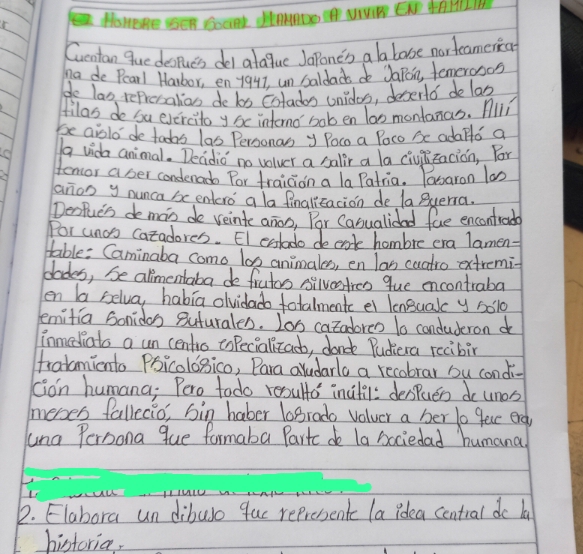 EL HOMBRE SER SOCIAL LLAMADO A VIVIR EN FAMILIA
Cuentan que después del ataque Japonés a la base norteamerica-
na de Pearl Harbor, en 1941, un saldado de Japón, temerosos
de las represalias de los Estados unidos, desertó de las
filas de su ejército y se internó sob en las montañas. Allí
se aisló de todas las Personas y Poco a Poco se adaptó a
la vida animal. Decidió no volver a salir a la civilización, Por
temor a ser condenado Por traición a la Patria. Pasaron los
años y nunca se enteró a la finalización de la guerra.
Después de más de veinte años, Por Casualidad fue encontrado
Por unos cazadores. El estado de este hombre era lamen-
table: Caminaba como los animales, en las cuatro extremi-
dades, se alimentaba de frutos silvestres que encontraba
en la selva, había olvidado totalmente el lenguaje y sólo
emitía sonidos guturales. Los cazadores lo condujeron de
inmediato a un centro especializado, donde Pudiera recibir
tratamiento Psicológico, Para ayudarlo a recobrar su condi-
ción humana; Pero todo resultó inútil: después de unos
meses falleció, sin haber logrado volver a ser lo que era,
una Persona que formaba Parte de la sociedad humana.
2. Elabora un dibujo que represente la idea central de la
historia.